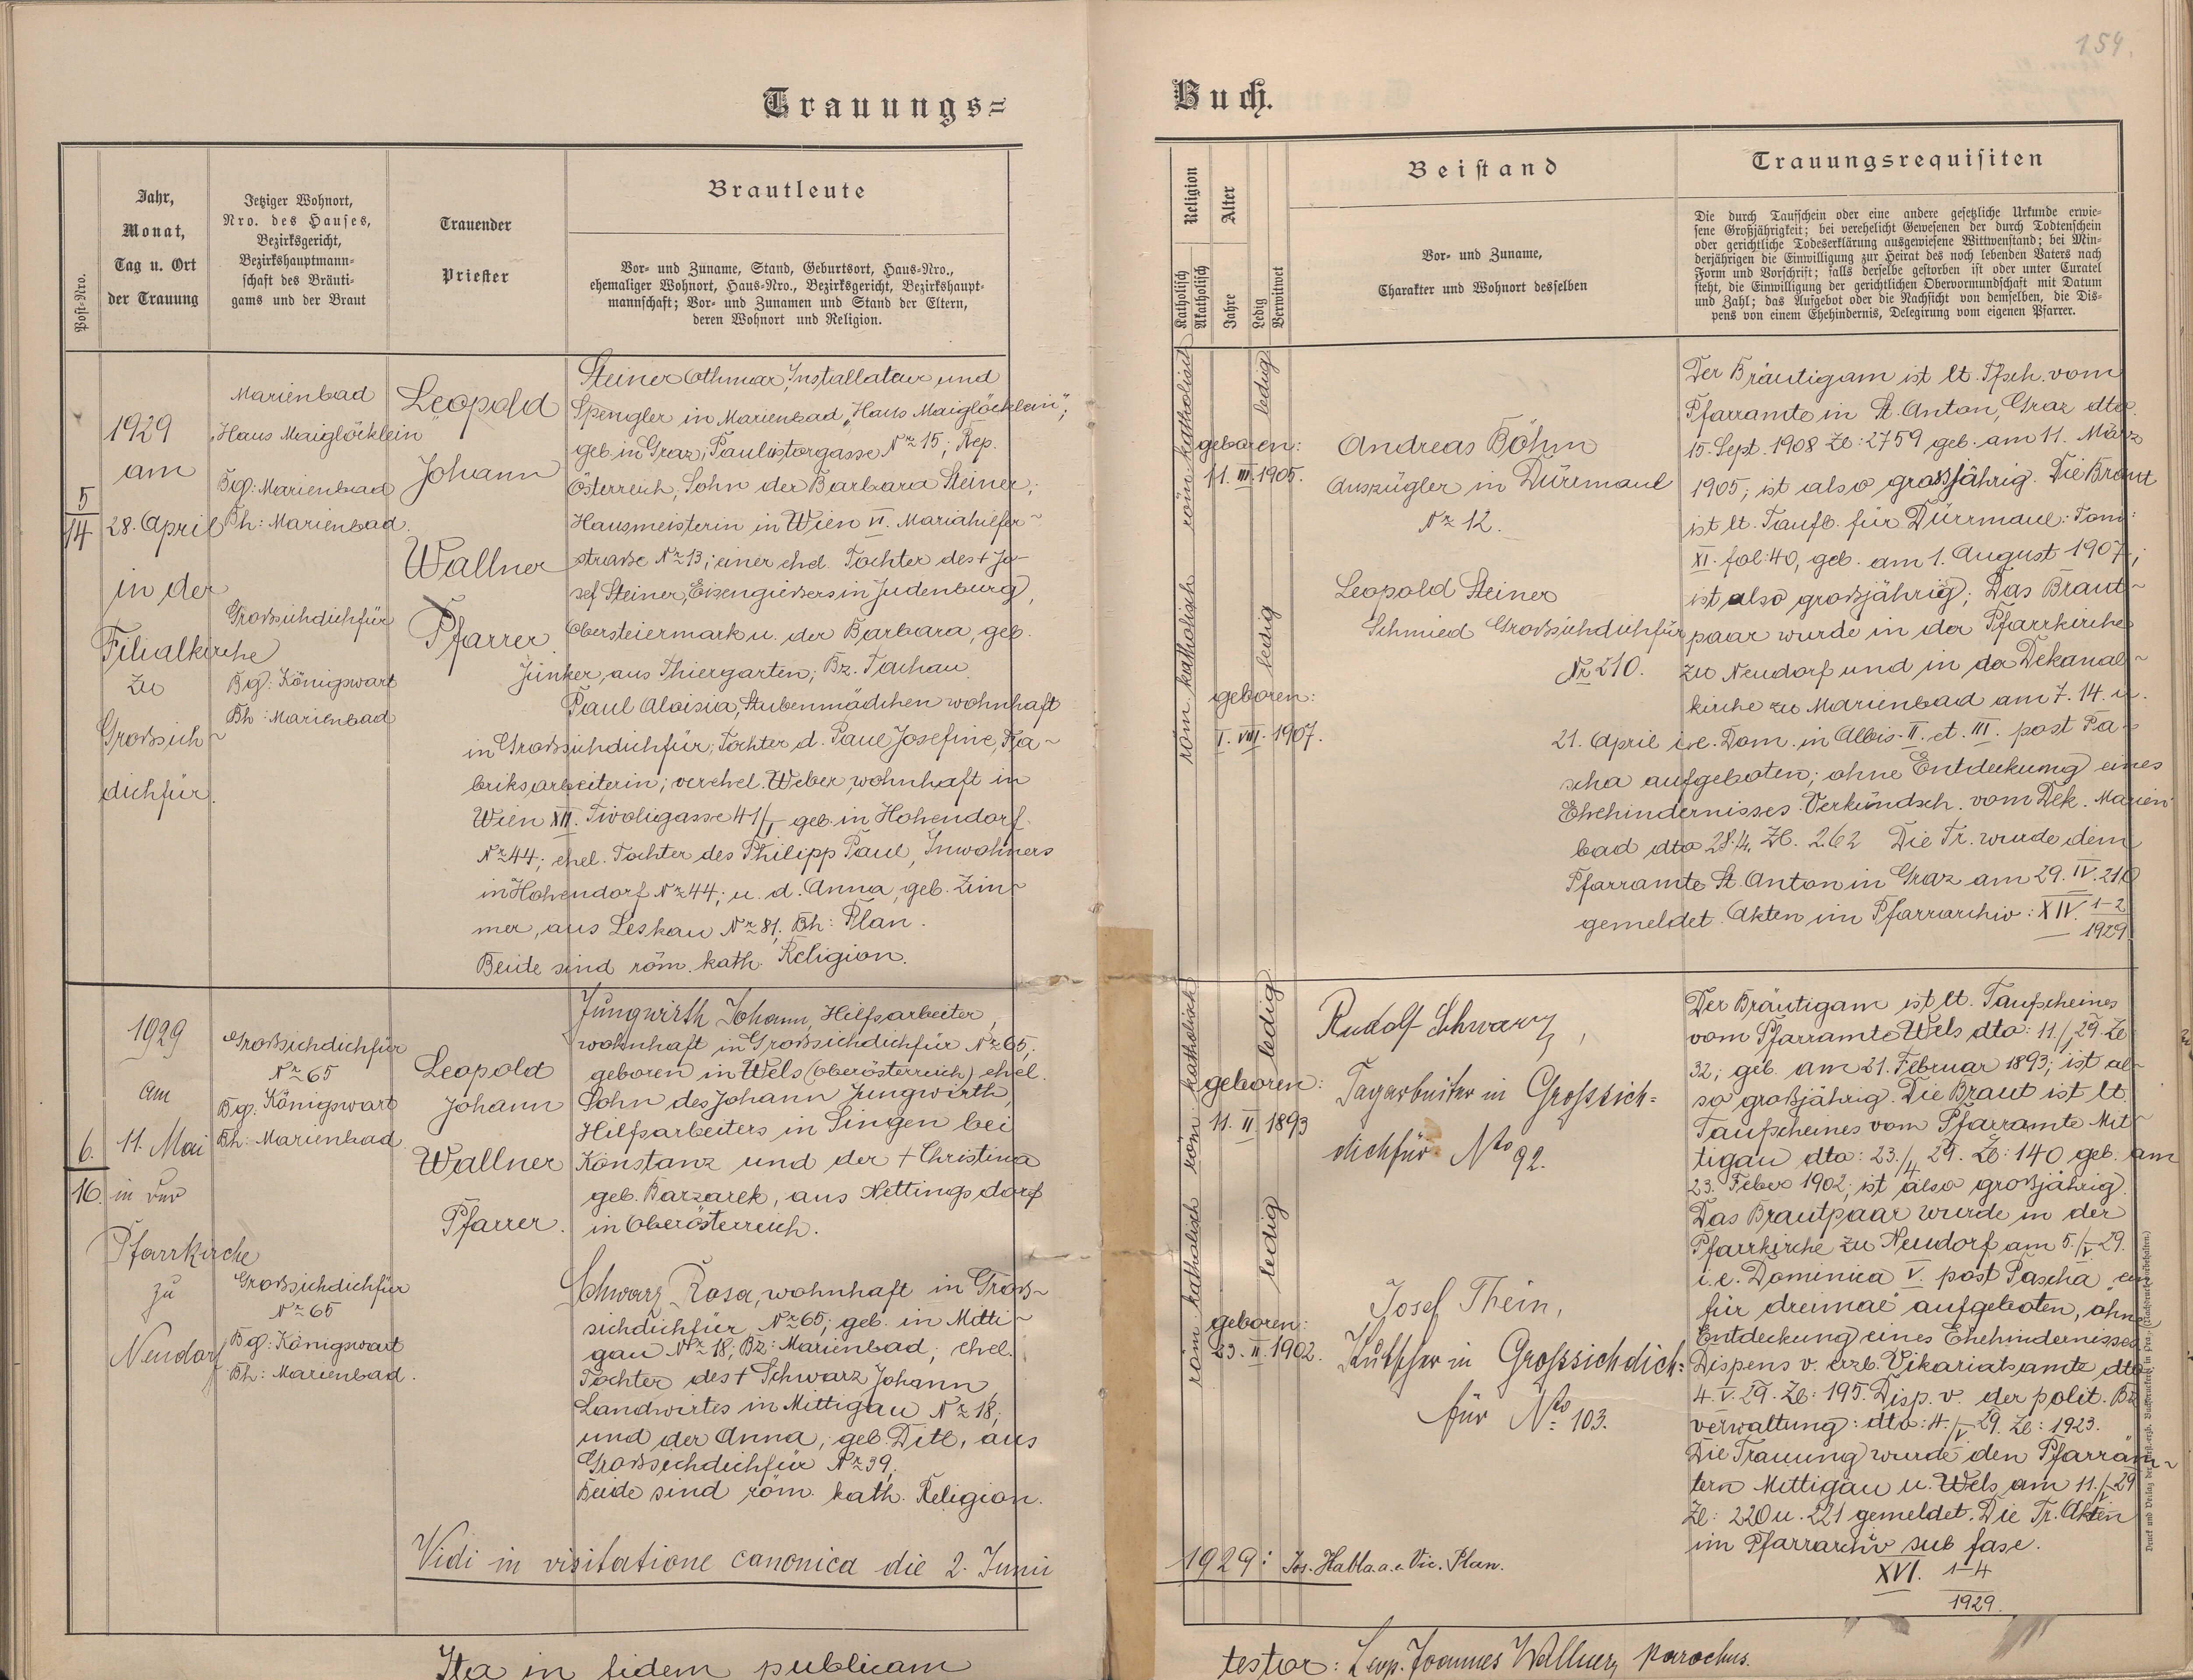 154.
Trauungs=
Buch.
Post-Nro.
Jahr,
Monat,
Tag u. Ort
der Trauung
Jetziger Wohnort,
Nro. des Hauses,
Bezirksgericht,
Bezirkshauptmann-
schaft des Bräuti-
gams und der Braut
Trauender
Priester
Brautleute
Vor- und Zuname, Stand, Geburtsort, Haus-Nro.,
ehemaliger Wohnort, Haus-Nro., Bezirksgericht, Bezirkshaupt-
mannschaft; Vor- und Zunamen und Stand der Eltern,
deren Wohnort und Religion.
Religion
Katholisch
Akatholisch
Alter
Jahre
Ledig
Verwitwet
Beistand
Vor- und Zuname,
Charakter und Wohnort desselben
Trauungsrequisiten
Die durch Taufschein oder eine andere gesetzliche Urkunde erwie-
sene Großjährigkeit; bei verehelicht Gewesenen der durch Todtenschein
oder gerichtliche Todeserklärung ausgewiesene Wittwenstand; bei Min-
derjährigen die Einwilligung zur Heirat des noch lebenden Vaters nach
Form und Vorschrift; falls derselbe gestorben ist oder unter Curatel
steht, die Einwilligung der gerichtlichen Obervormundschaft mit Datum
und Zahl; das Aufgebot oder die Nachsicht von demselben, die Dis-
pens von einem Ehehindernis, Delegirung vom eigenen Pfarrer.
5
14
1929
am
28. April
in der
Filialkirche
zu
Großsich-
dichfür.
Marienbad
"Haus Maiglöcklein"
Bg: Marienbad
Bh: Marienbad.
Großsichdichfür
Bg: Königswart
Bh: Marienbad
Leopold
Johann
Wallner
Pfarrer.
Steiner Othmar, Installateur und
Spengler in Marienbad, "Haus Maiglöcklein";
geb. in Graz, Paulistorgasse Nr 15; Rep.
Österreich, Sohn der Barbara Steiner,
Hausmeisterin in Wien VI. Mariahilfer-
straße Nr 13; einer ehel. Tochter des + Jo-
sef Steiner, Eisengießers in Judenburg,
Obersteiermark u. der Barbara, geb.
Junker, aus Thiergarten, Bz. Tachau.
Paul Aloisia, Stubenmädchen wohnhaft
in Großsichdichfür, Tochter d. Paul Josefine, Fa-
briksarbeiterin; verehel. Weber, wohnhaft in
Wien XII. Tivoligasse 41/I geb. in Hohendorf
Nr 44; ehel. Tochter des Philipp Paul, Inwohners
in Hohendorf Nr 44; u. d. Anna, geb. Zim-
mer, aus Leskau Nr 81. Bh: Plan.
Beide sind röm. kath. Religion.
röm. katholisch
geboren:
11. III. 1905.
ledig
röm. katholisch
geboren:
1. VIII. 1907.
ledig
Andreas Böhm
Auszügler in Dürrmaul
Nr 12.
Leopold Steiner
Schmied Großsichdichfür
Nr 210.
Der Bräutigam ist lt. Tfsch. vom
Pfarramte in St. Anton, Graz dto.
15. Sept. 1908 Zl: 2759 geb. am 11. März
1905; ist also grossjährig. Die Braut
ist lt. Taufb. für Dürrmaul: Tom:
XI. fol: 40, geb. am 1. August 1907;
ist also großjährig; Das Braut-
paar wurde in der Pfarrkirche
zu Neudorf und in der Dekanal-
kirche zu Marienbad am 7. 14. u.
21. April i. e. Dom. in Albis. II. et. III. post Pa-
scha aufgeboten; ohne Entdeckung eines
Ehehindernisses. Verkündsch. vom Dek. Marien-
bad dto 28.4. Zl. 262 Die Tr. wurde dem
Pfarramte St. Anton in Graz am 29. IV. 210
gemeldet. Akten im Pfarrarchiv: XIV. 1-2
1929
6.
16.
1929
am
11. Mai
in der
Pfarrkirche
zu
Neudorf
Großsichdichfür
Nr 65
Bg. Königswart
Bh: Marienbad
Großsichdichfür
Nr 65
Bg: Königswart
Bh: Marienbad.
Leopold
Johann
Wallner
Pfarrer.
Jungwirth Johann, Hilfsarbeiter,
wohnhaft in Großsichdichfür Nr 65;
geboren in Wels (Oberösterreich) ehel.
Sohn des Johann Jungwirth,
Hilfsarbeiters in Singen bei
Konstanz und der + Christina
geb. Barzarek, aus Nettingsdorf
in Oberösterreich.
Schwarz Rosa, wohnhaft in Groß-
sichdichfür Nr 65; geb. in Mitti-
gau Nr 18, Bz: Marienbad; ehel.
Tochter des + Schwarz Johann
Landwirtes in Mittigau Nr 18;
und der Anna, geb. Ditl, aus
Großsichdichfür Nr 39.
Beide sind röm. kath. Religion.
röm. katholisch
geboren:
11. II. 1893
ledig
röm. katholisch
geboren:
23. II. 1902.
ledig
Rudolf Schwarz,
Tagarbeiter in Grosssich=
dichfür No 92.
Josef Thein,
Kutscher in Grosssichdich=
für No 103.
Der Bräutigam ist lt. Taufscheines
vom Pfarramte Wels dto: 11./I 29. Zl
32; geb. am 21. Februar 1893; ist al-
so großjährig. Die Braut ist lt.
Taufscheines vom Pfarramte Mit-
tigau dto: 23./4 29. Zl: 140 geb. am
23. Feber 1902; ist also großjährig.
Das Brautpaar wurde in der
Pfarrkirche zu Neudorf am 5./V 29.
i. e. Dominica V. post Pascha "ein
für dreimal" aufgeboten, ohne
Entdeckung eines Ehehindernisses
Dispens v. erzb. Vikariatsamte dto
4. V. 29. Zl: 195. Disp. v. der polit. Bz
verwaltung: dto: 4./V 29. Zl: 1923.
Die Trauung wurde den Pfarräm-
tern Mittigau u. Wels am 11./V 29
Zl: 220 u. 221 gemeldet. Die Tr. Akten
im Pfarrarchiv sub fasc.
XVI. 1-4
1929.
Vidi in visitatione canonica die 2. Junii
1929: Jos. Habla a. e. Vic. Plan.
Ita in fidem publicam
testor: Leop. Joannes Wallner, parochus.